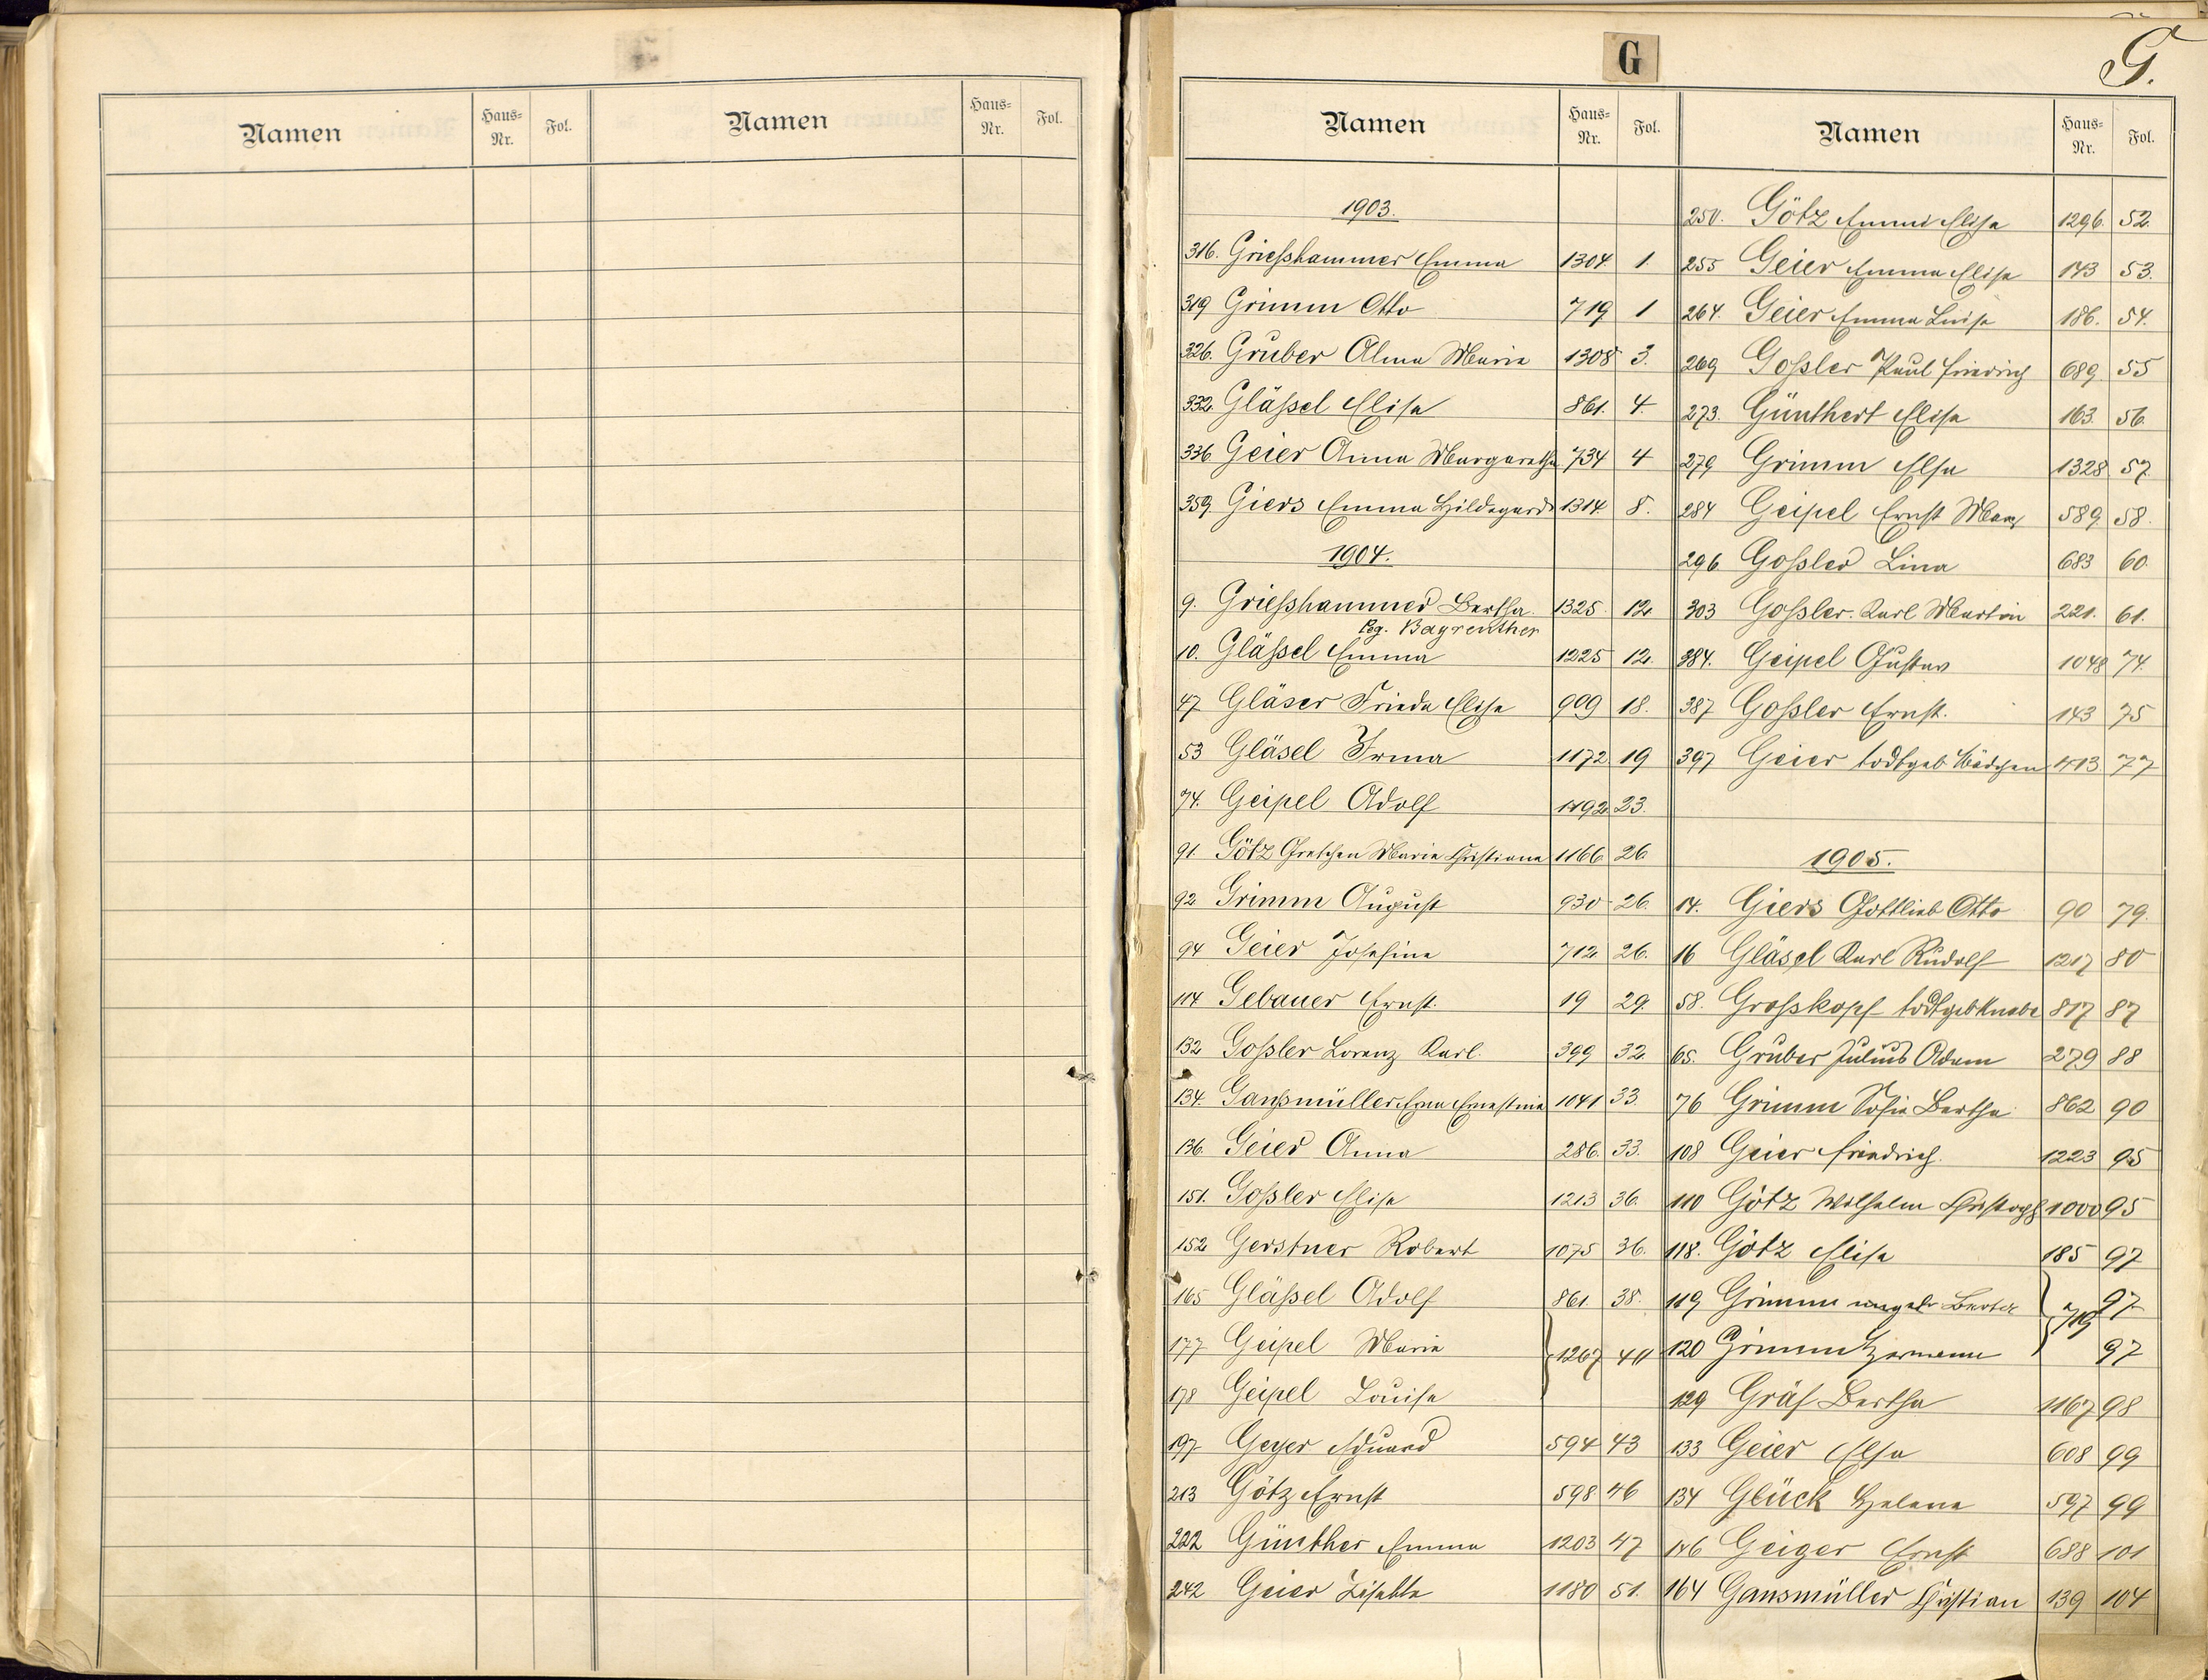 Namen Haus-Nr. Fol. Namen Haus-Nr. Fol.
G
G.
Namen Haus-Nr. Fol. Namen Haus-Nr. Fol.
1903.
316. Griesshammer Emma 1304 1.
319 Grimm Otto 719 1
326. Gruber Alma Maria 1308 3.
332. Glässel Elisa 861. 4.
336. Geier Anna Margaretha 734 4
359 Giers Emma Hildegard 1314. 8.
1904.
9. Griesshammer Bertha 1325. 12.
Bg. Bayreuther
10. Glässel Emma 1225 12.
47 Gläser Frieda Elisa 909 18.
53 Gläsel Irma 1172 19
74. Geipel Adolf 1192 23.
91. Götz Gretchen Maria Christiana 1166 26
92 Grimm August 930 26.
94 Geier Josefina 712 26.
114 Gebauer Ernst. 19 29.
132 Gossler Lorenz Karl. 399 32.
134. Gansmüller Ernestine 1041 33.
136. Geier Anna 286. 33.
151. Gossler Elisa 1213 36.
152 Gerstner Robert 1075 36.
165 Glässel Adolf 861. 38.
177 Geipel Maria 1267 40
178 Geipel Louisa
197 Geyer Eduard 594 43
213 Götz Ernst 598 46
222 Günther Emma 1203 47
242 Geier Lisette 1180 51.
250. Götz Emmi Elisa 1296. 52.
255 Geier Emma Elisa 143 53.
264. Geier Emma Luisa 186. 54.
269 Gossler Paul Friedrich 689. 55
273. Günthert Elisa 163. 56.
279 Grimm Elsa 1328 57
284 Geipel Ernst Max 589 58.
296 Gossler Lina 683 60.
303 Gossler Karl Martin 221. 61.
384. Geipel Gustav 1048 74.
387 Gossler Ernst. 143 75
397 Geier todtgeb Mädchen 1113 77
1905.
14. Giers Gottlieb Otto 90 79.
16 Gläsel Karl Rudolf 1217 80
58. Grosskopf todtgeb Knabe 817 87
65. Gruber Julius Adam 279 88
76 Grimm Sofie Bertha 862 90
108 Geier Friedrich. 1223 95
110 Götz Wilhelm Christoph 1000 95
118. Götz Elisa 185 97
119 Grimm Berta 719 97
120 Grimm Hermann 97
129 Gräf Bertha 1167 98
133 Geier Elsa 608 99
134 Glück Helena 597 99
146 Geiger Ernst 688 101
164 Gansmüller Christian 139 104